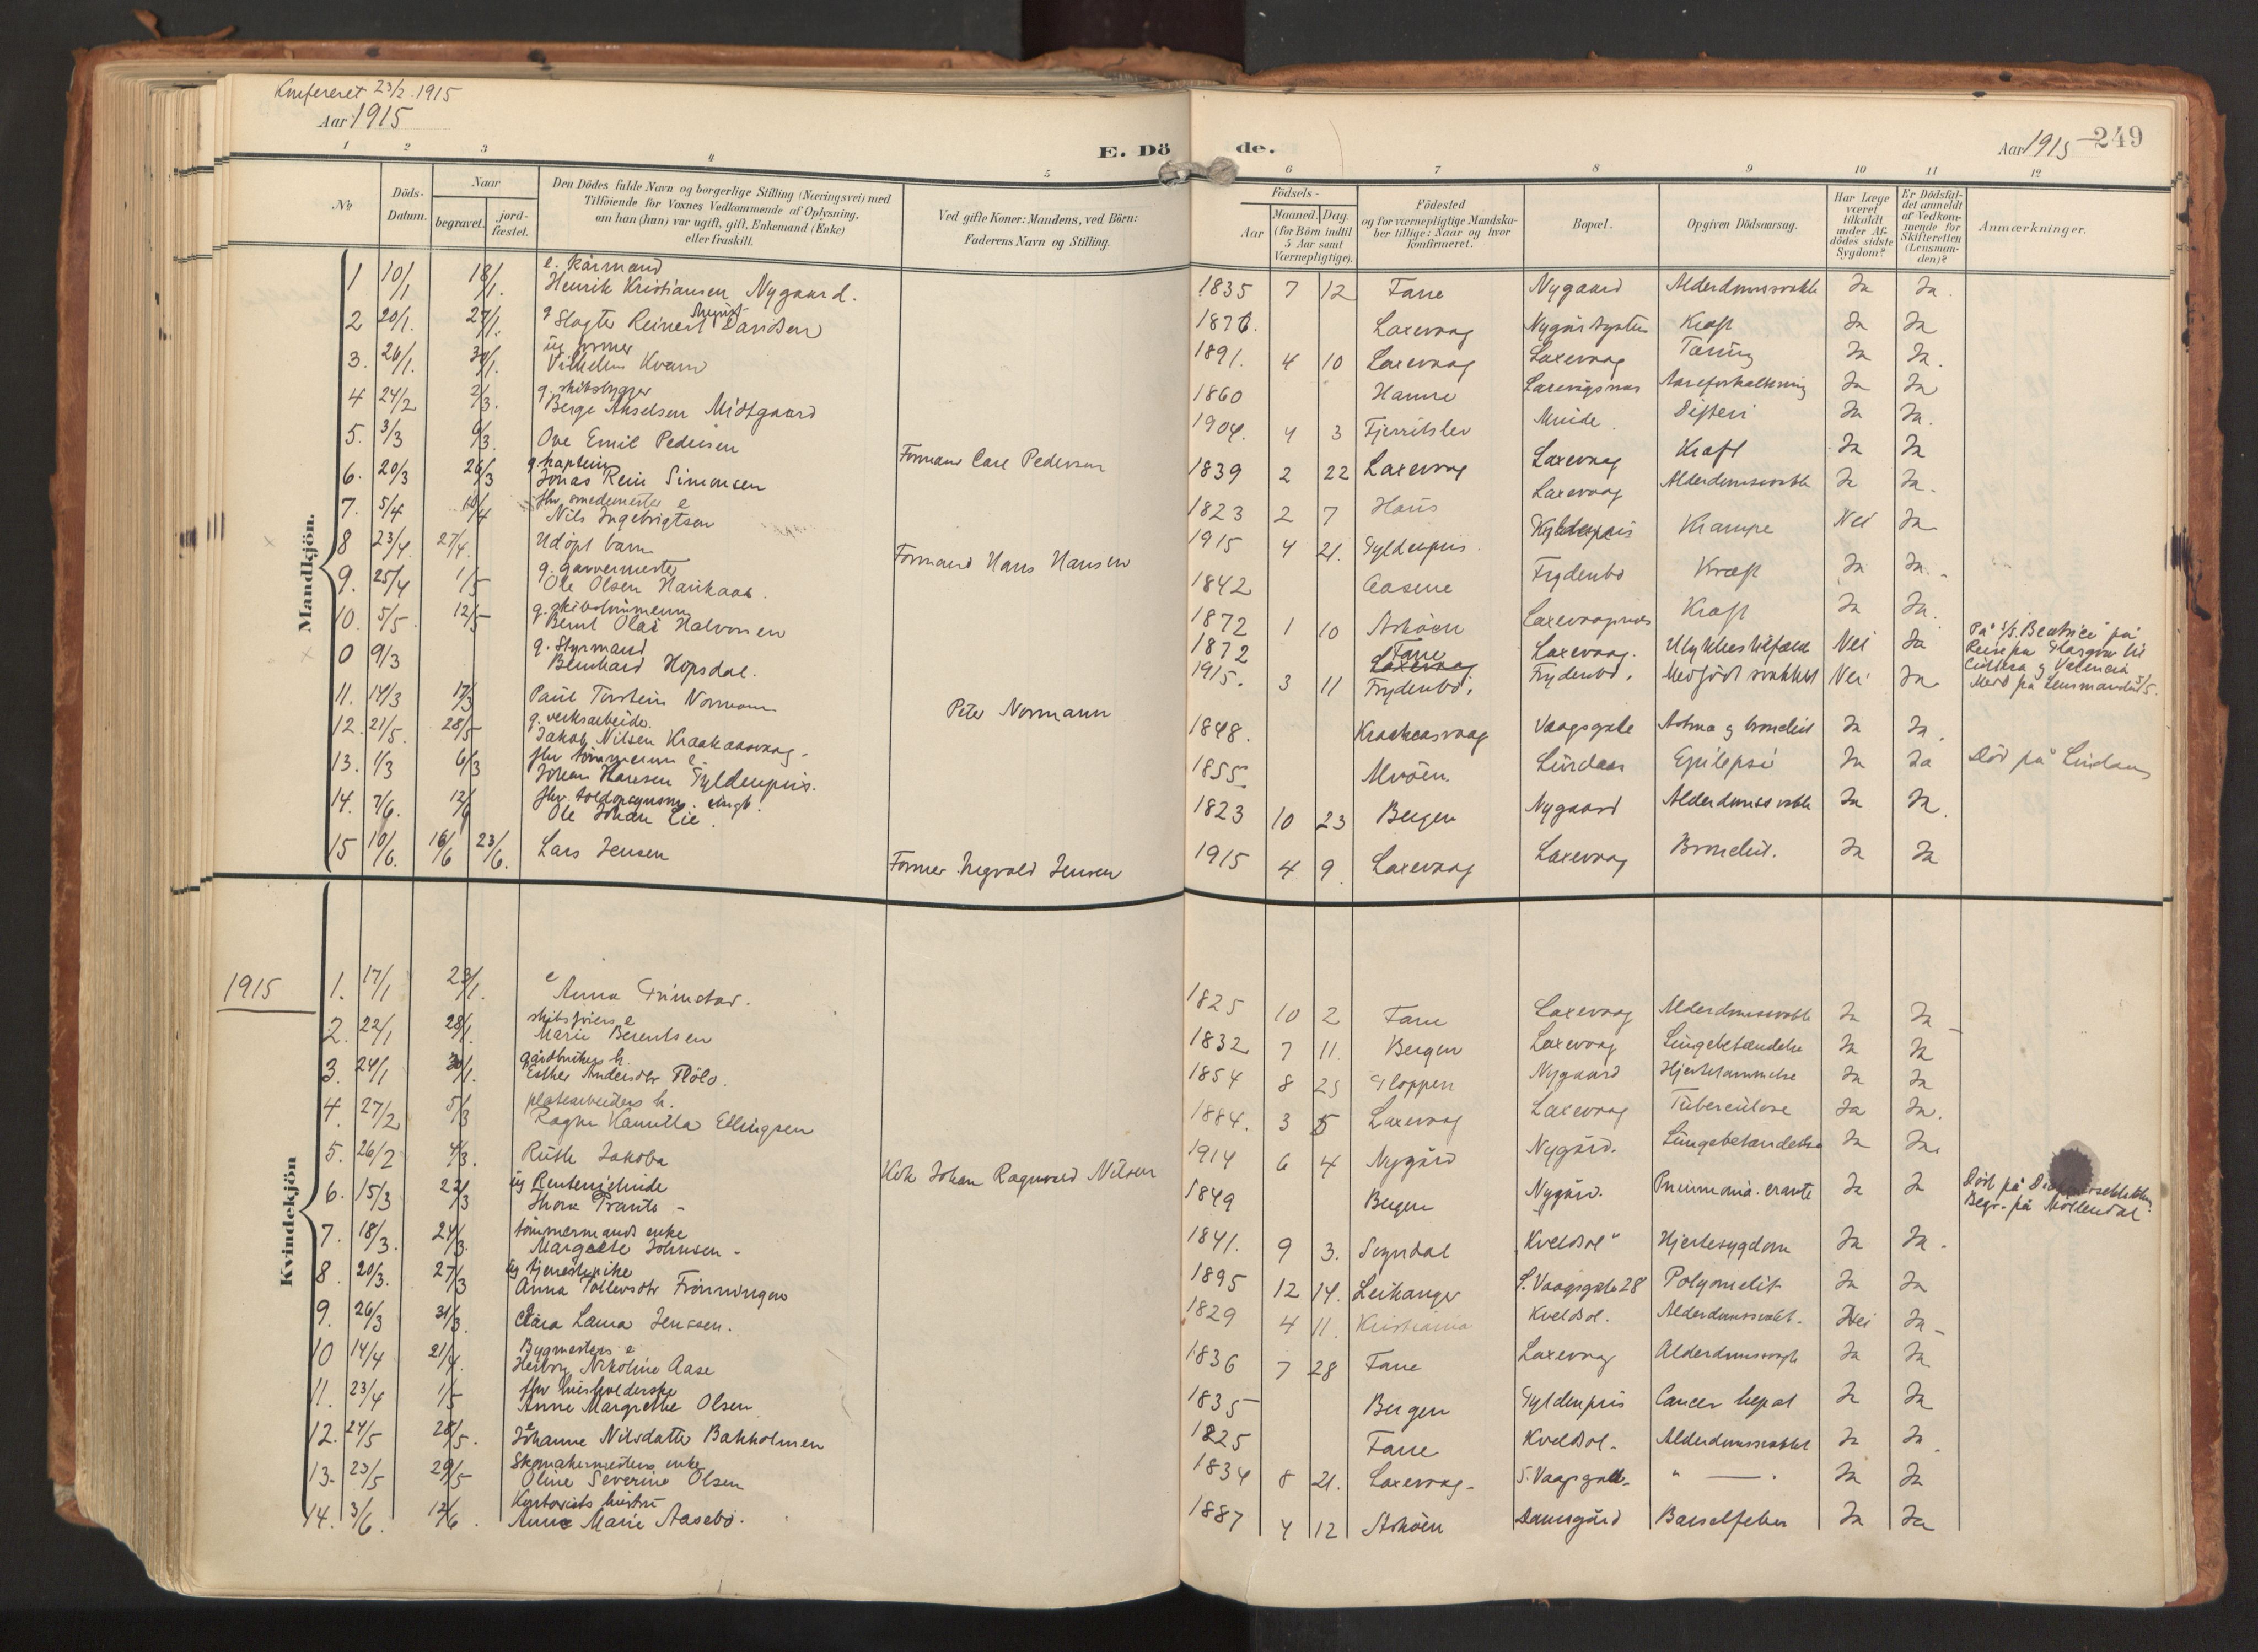 Konfereret 23/2 1915
Aar 1915
E. Dö de.
Aar 1915
249
1 2 3 4 5 6 7 8 9 10 11 12
No
Döds-Datum.
Naar
begravet.
jord-fæstet.
Den Dödes fulde Navn og borgerlige Stilling (Næringsvei) med
Tilföiende for Voxnes Vedkommende af Oplysning,
om han (hun) var ugift, gift, Enkemand (Enke)
eller fraskilt.
Ved gifte Koner: Mandens, ved Börn:
Faderens Navn og Stilling.
Födsels-
Aar
Maaned. Dag.
(for Börn indtil
5 Aar samt
Værnepligtige).
Födested
og for værnepligtige Mandskaber tillige: Naar og hvor
konfirmeret.
Bopæl.
Opgiven Dödsaarsag.
Har Læge været tilkaldt under Afdödes sidste Sygdom?
Er Dödsfaldet anmeldt af Vedkommende for Skifteretten (Lensmanden)?
Anmærkninger.
Mandkjön.
1 10/1 18/1. e. kårmand Henrik Kristiansen Nygaard. 1835 7 12 Fane Nygaard Alderdomssvakh Ja Ja.
2 20/1. 27/1. g Slagter Reinert Davidsen 1876. Laxevaag Kræft Ja Ja
3. 26/1. 30/1. ug former Vilhelm Kvam 1891. 4 10 Laxevaag Laxevaag Tæring Ja Ja.
4 24/2 2/3. g. skibsbygger Berge Akselsen Midtgaard 1860 Hamre Laxevågsnes Aareforkalkning Ja Ja
5. 3/3 9/3. Ove Emil Pedersen Formand Carl Pedersen 1904. 4 3 Fjerritslev Minde. Difteri Ja Ja.
6. 20/3 26/3 g. kaptein Jonas Rein Simonsen 1839 2 22 Laxevaag Laxevaag Kræft Ja Ja
7. 5/4 10/4 fhv. smedemester e Nils Ingebrigtsen 1823 2 7 Haus Laxevaag Alderdomssvakh Ja Ja.
8 23/4. 27/4. Udøpt barn Formand Hans Hansen 1915 4 21. Gyldenpris. Gyldenpris Krampe Nei Ja
9. 25/4 1/5 g. garvermester Ole Olsen Haukaas. 1842 Aasene Frydenbø Kræft Ja Ja.
10. 5/5. 12/5 g. skibstømmerm Bernt Olai Halvorsen 1872 1 10 Askøen Laxevaagnes Kræft Ja Ja.
0 9/3 g. Styrmand Bernhard Hopsdal. 1872 Fane Laxevaag. Ulykkestilfæld Nei Ja På S/S. "Beatrice" på Reise fra Glasgow til Cullera og Valencia
11. 14/3 17/3 Paul Torstein Normann Peter Normann 1915. 3 11 Frydenbø. Frydenbø. Medfødt svakhet Nei Ja Meld på Lensmanden 5/5.
12. 21/5. 28/5 g. verksarbeider Jakob Nilsen Kraakaasvaag. 1848. Kraakaasvaag Vaagsgate Astma og bronchit Ja Ja.
13. 1/3 6/3 fhv tømmerm e. Johan Hansen Gyldenpris. 1855 Alvøen. Lindaas Epilepsi Ja Ja Død på Lindaas
14. 7/6. 12/6 fhv. toldopsynsm. Ole Johan Lie. 1823 10 23 Bergen Nygaard Alderdomssvakh Ja Ja.
15 10/6. 16/6 23/6. Lars Jensen Former Ingvald Jensen 1915 4 9. Laxevaag Laxevaag Bronchit. Ja Ja
1915
Kvindekjön
1. 17/1 23/1. e Anna Grimstad. 1825 10 2 Fane Laxevaag Alderdomssvakh Ja Ja
2. 22/1 28/1. skibsförers e Marie Berentsen 1832 7 11. Bergen Laxevaag Lungebetændelse Ja Ja
3. 24/1 30/1. gårdbrukers h. Esther Andersdtr Fløto. 1854 8 25 Gloppen Nygaard Hjertelammelse Ja Ja
4. 27/2 5/3 platearbeiders h. Ragna Kamilla Ellingsen 1884. 3 5 Laxevaag Laxevaag Tuberculose Ja Ja.
5. 26/2 4/3. Ruth Jakoba Kok Johan Ragnvald Nilsen 1914 6 4 Nygård Nygård. Lungebetændelse Ja Ja.
6. 15/3 22/3 ug Rentenist Thora Prante 1849 Bergen Nygård. Pneumonia Ja Ja Død på Begr. på Møllendal
7. 18/3. 24/3. tømmermands enke Margrete Johnsen 1841. 9 3. Sogndal "Kveldsol" Hjertesygdom Ja Ja.
8. 20/3. 27/3 ug tjenestepike Anna Tollevsdtr Frønningen 1895 12 14. Leikanger S. Vaagsgate 28 Polyomelit Ja Ja
9. 26/3 31/3. Clara Laura Jenssen. 1829 4 11. Kristiania Kveldsol. Alderdomssvakh. Nei Ja
10 14/4 21/4. Bygmesters e Herborg Nikoline Aase 1836 7 28 Fane Laxevaag Alderdomssvakh Ja Ja
11. 23/4 1/5 fhv husholderske Anne Margrethe Olsen 1835 Bergen Gyldenpris Cancer hepat Ja Ja
12. 24/5 28/5. e Johanne Nilsdatter Bakholmen 1825 Fane Kveldsol. Alderdomssvakhet Ja Ja.
13. 23/5 29/5 Skomakermesters enke Oline Severine Olsen 1834 8 21. Laxevaag S. Vaagsgate " — Ja Ja
14. 3/6. 12/6. Kontorists hustru Anna Marie Aasebø. 1887 4 12 Askøen Damsgård Barselfeber Ja Ja